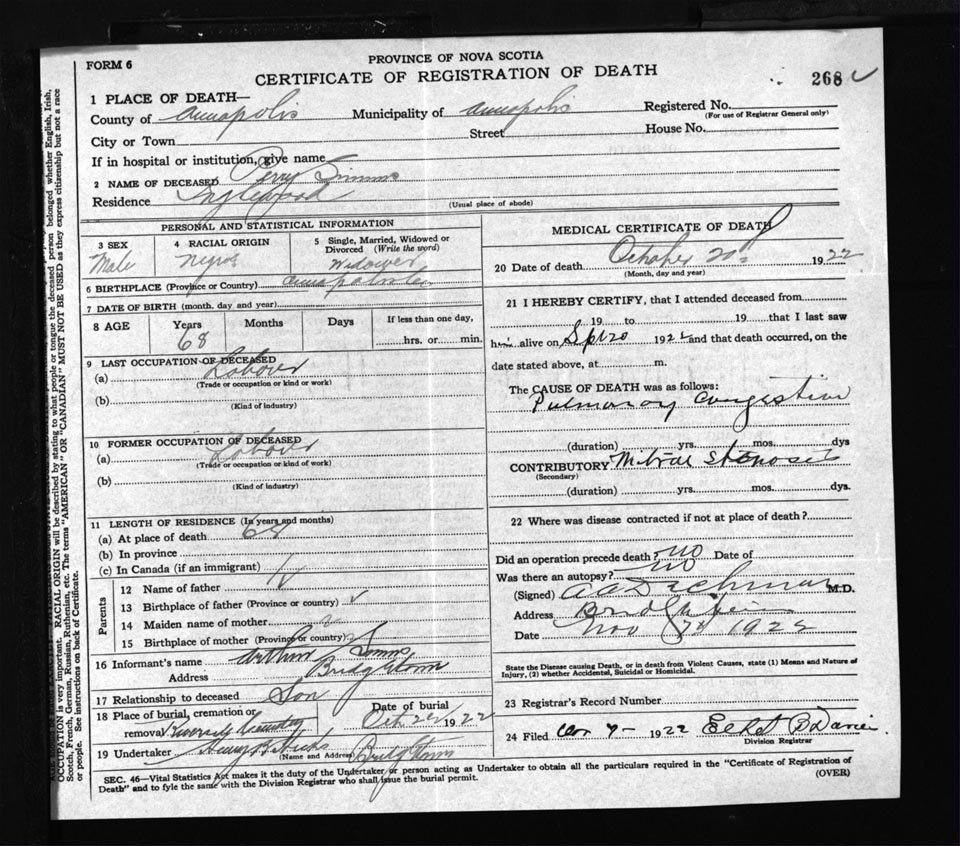 FORM 6
PROVINCE OF NOVA SCOTIA
CERTIFICATE OF REGISTRATION OF DEATH
268
1 PLACE OF DEATH—
County of Annapolis Municipality of Annapolis Registered No.
(For use of Registrar General only)
City or Town Street House No.
If in hospital or institution, give name
2 NAME OF DECEASED Perry Simms
Residence Inglewood
(Usual place of abode)
PERSONAL AND STATISTICAL INFORMATION
3 SEX 4 RACIAL ORIGIN 5 Single, Married, Widowed or Divorced (Write the word)
Male Negro Widower
6 BIRTHPLACE (Province or Country)
7 DATE OF BIRTH (month, day and year)
8 AGE Years Months Days If less than one day,
68 hrs. or min.
9 LAST OCCUPATION OF DECEASED
(a) Labour
(Trade or occupation or kind or work)
(b)
(Kind of industry)
10 FORMER OCCUPATION OF DECEASED
(a) Labour
(Trade or occupation or kind of work)
(b)
(Kind of industry)
11 LENGTH OF RESIDENCE (In years and months)
(a) At place of death 68
(b) In province
(c) In Canada (if an immigrant)
Parents
12 Name of father
13 Birthplace of father (Province or country)
14 Maiden name of mother
15 Birthplace of mother (Province or country)
16 Informant's name Arthur Simms
Address Bridgetown
17 Relationship to deceased Son
18 Place of burial, cremation or removal Riverside Cemetery
Date of burial
Oct 22 1922
19 Undertaker Harry B Hicks Bridgetown
(Name and Address)
MEDICAL CERTIFICATE OF DEATH
20 Date of death October 20 1922
(Month, day and year)
21 I HEREBY CERTIFY, that I attended deceased from
19 to 19 that I last saw
him alive on Sp 20 1922 and that death occurred, on the
date stated above, at m.
The CAUSE OF DEATH was as follows:
Pulmonary Congestion
(duration) yrs. mos. dys
CONTRIBUTORY Mitral Stenosis
(Secondary)
(duration) yrs. mos. dys.
22 Where was disease contracted if not at place of death?
Did an operation precede death? no Date of
Was there an autopsy? no
(Signed) M.D.
Address Bridgetown
Date Nov 7th 1922
State the Disease causing Death, or in death from Violent Causes, state (1) Means and Nature of
Injury, (2) whether Accidental, Suicidal or Homicidal.
23 Registrar's Record Number
24 Filed Nov 7 1922
Division Registrar
SEC. 46—Vital Statistics Act makes it the duty of the Undertaker or person acting as Undertaker to obtain all the particulars required in the "Certificate of Registration of
Death" and to fyle the same with the Division Registrar who shall issue the burial permit. (OVER)
OCCUPATION is very important. RACIAL ORIGIN will be described by stating to what people or tongue the deceased person belonged whether English, Irish,
Scotch, French, German, Russian, Ruthenian, etc. The terms "AMERICAN" OR "CANADIAN" MUST NOT BE USED as they express citizenship but not a race
or people. See instructions on back of Certificate.